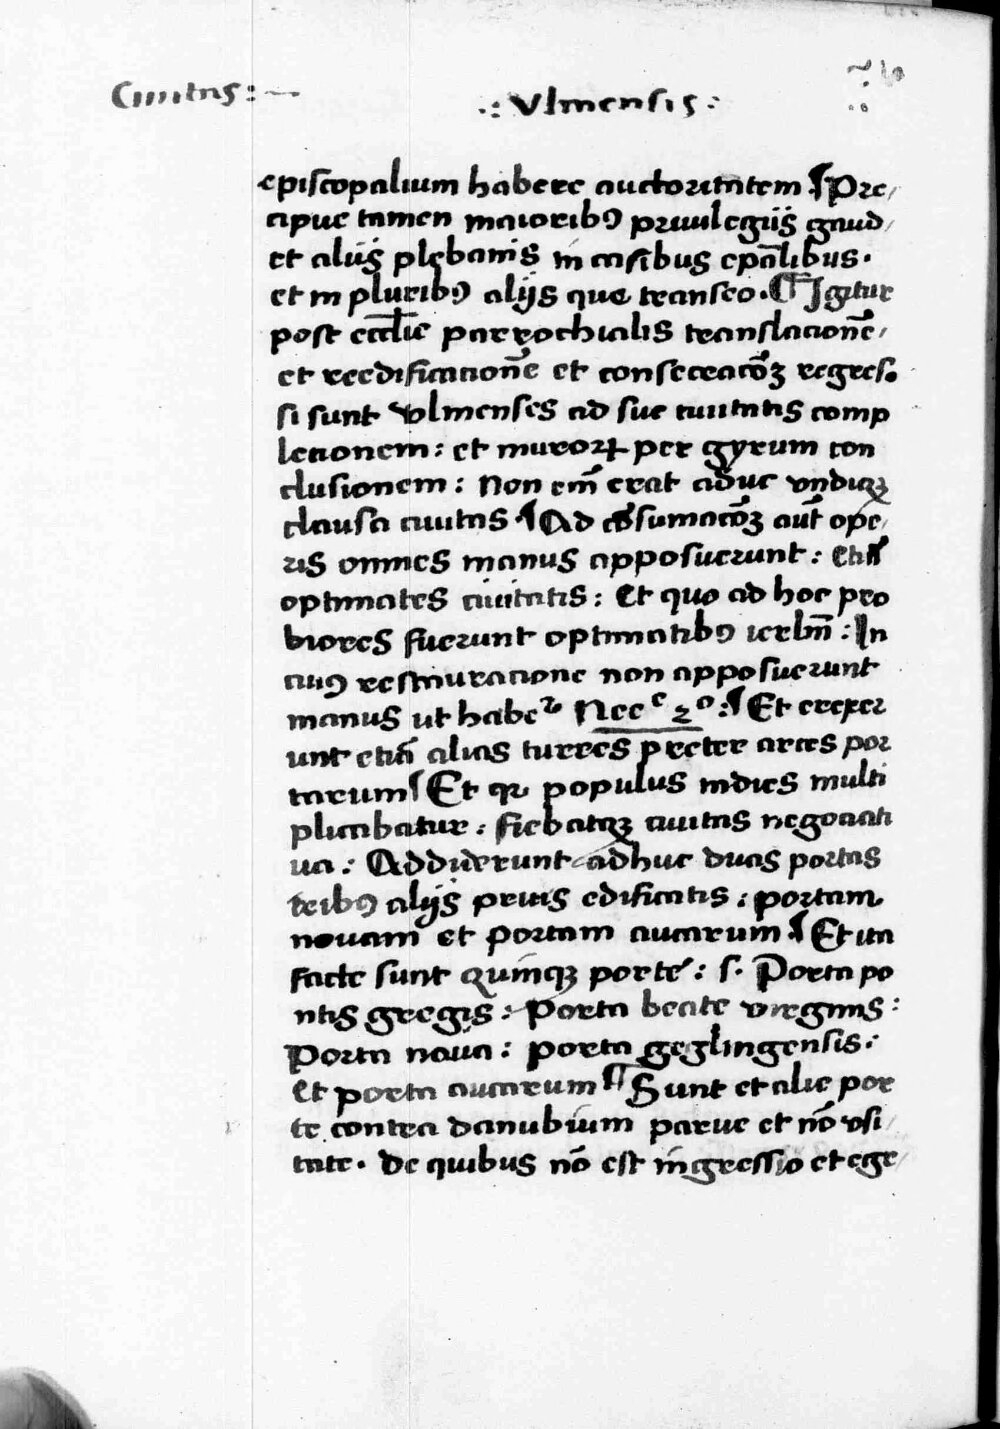 Ciuitas :—
.: Vlmensis :
episcopalium habere auctoritatem ¶ Pre/
cipue tamen maioribꝰ priuilegiis gaud/
et aliis plebanis in casibus ep̄alibus .
et in pluribꝰ aliis que transeo . ¶ Igitur
post eccl̄ie parrochialis translacionē/
et reedificacionē et consecracōꝫ regres .
si sunt Vlmenses ad sue ciuitatis comp
lecionem : et muroꝝ per gyrum con
clusionem : Non em̄ erat aduc vndiqꝫ
clausa ciuitas ¶ Ad cōsumacōꝫ aut̄ ope/
ris omnes manus apposuerunt : Etiā
optimates ciuitatis : Et quo ad hoc pro
biores fuerunt optimatibꝰ ierlm̄ : In
cuiꝰ restauracione non apposuerunt
manus ut haber Neeᵉ 2º : ¶ Et erexer
unt etiā alias turres preter arces por
tarum ¶ Et qꝛ populus indies multi
plicabatur : fiebatqꝫ ciuitas negociati
ua : Addiderunt adhuc duas portas
tribꝰ aliis prius edificatis : portam
nouam et portam aucarum ¶ Et ita
facte sunt quinqꝫ porte : s . Porta po
ntis gregis : Porta beate virginis :
Porta noua : porta geglingensis .
Et porta aucarum ¶ Sunt et alie por
te contra danubium parue et nō vsi/
tate . De quibus nō est ingressio et egr/